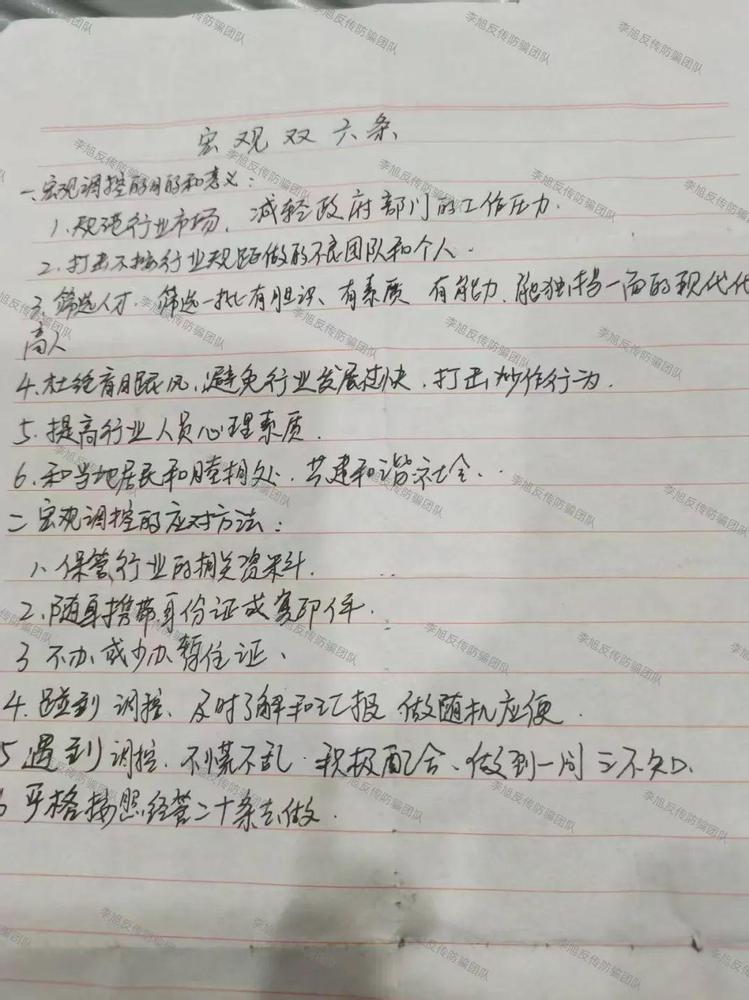 宏观双六条
一、宏观调控的目的和意义：
1、规范行业市场，减轻政府部门的工作压力.
2.打击不按行业规距做的不良团队和个人.
3、筛选人才.筛选一批有胆识、有素质 有能力.能独挡一面的现代化
高人
4.杜绝盲目跟风,避免行业发展过快.打击炒作行为.
5.提高行业人员心理素质.
6.和当地居民和睦相处.共建和谐社会..
二宏观调控的应对方法：
1、保管行业的相关资料.
2.随身携带身份证或复印件.
3不办或少办暂住证、
4.碰到调控、及时了解和汇报 做随机应便.
5遇到调控.不慌不乱.积极配合、做到一问三不知.
6严格按照经营二十条去做.
李旭反传防骗团队